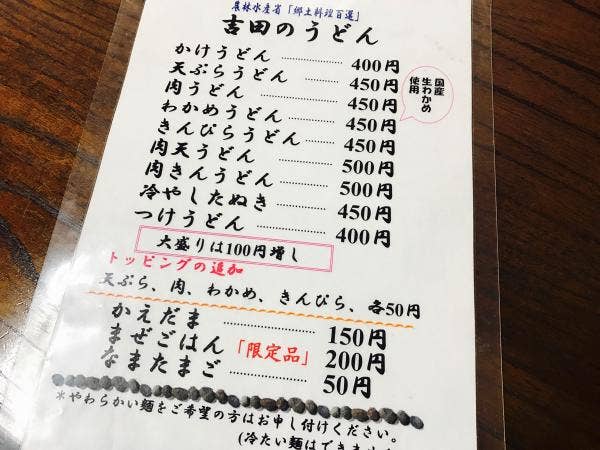 農林水産省「郷土料理百選」
吉田のうどん
かけうどん 400円
天ぷらうどん 450円
肉うどん 450円
わかめうどん 450円
国産
生わかめ
使用
きんぴらうどん 450円
肉天うどん 500円
肉きんうどん 500円
冷やしたぬき 450円
つけうどん 400円
大盛りは100円増し
トッピングの追加
天ぷら、肉、わかめ、きんぴら、各50円
かえだま 150円
まぜごはん「限定品」 200円
なまたまご 50円
*やわらかい麺をご希望の方はお申し付けください。
(冷たい麺はできません